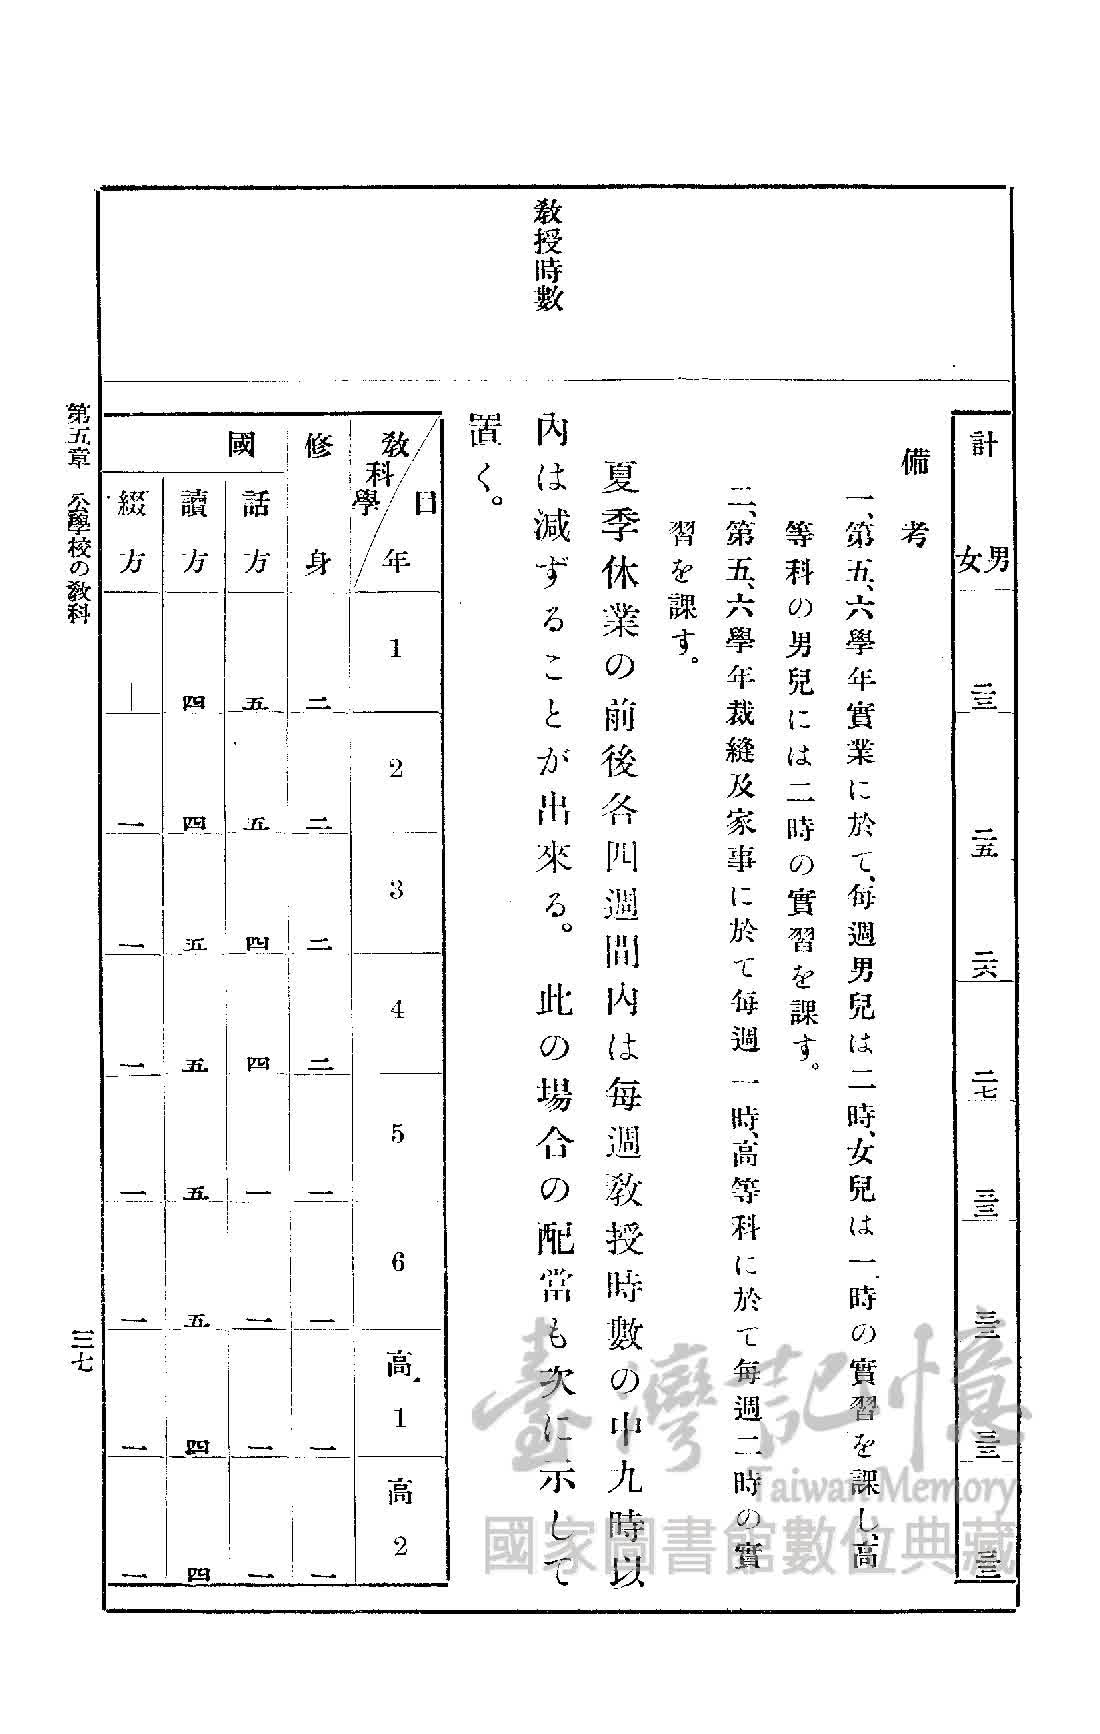 敎授時數
計
男女
二三
二五
二六
二七
備考
一、第五、六學年實業に於て、每週男兒は二時、女兒は一時の實習を課し、高
等科の男兒には二時の實習を課す。
二、第五、六學年裁縫及家事に於て每週一時、高等科に於て每週二時の實
習を課す。
夏季休業の前後各四週間内は每週敎授時數の中九時以
内は減ずることが出來る。此の場合の配當も次に示して
置く。
敎科目 學年 1 2 3 4 5 6 高1 高2
修身 二 二 二 二 一 一 一 一
國
話方 五 五 四 四 一 一 一 一
讀方 四 四 五 五 五 五 四 四
綴方 ― 一 一 一 一 一 一 一
第五章 公學校の敎科
三七
臺灣記憶
Taiwan Memory
國家圖書館數位典藏